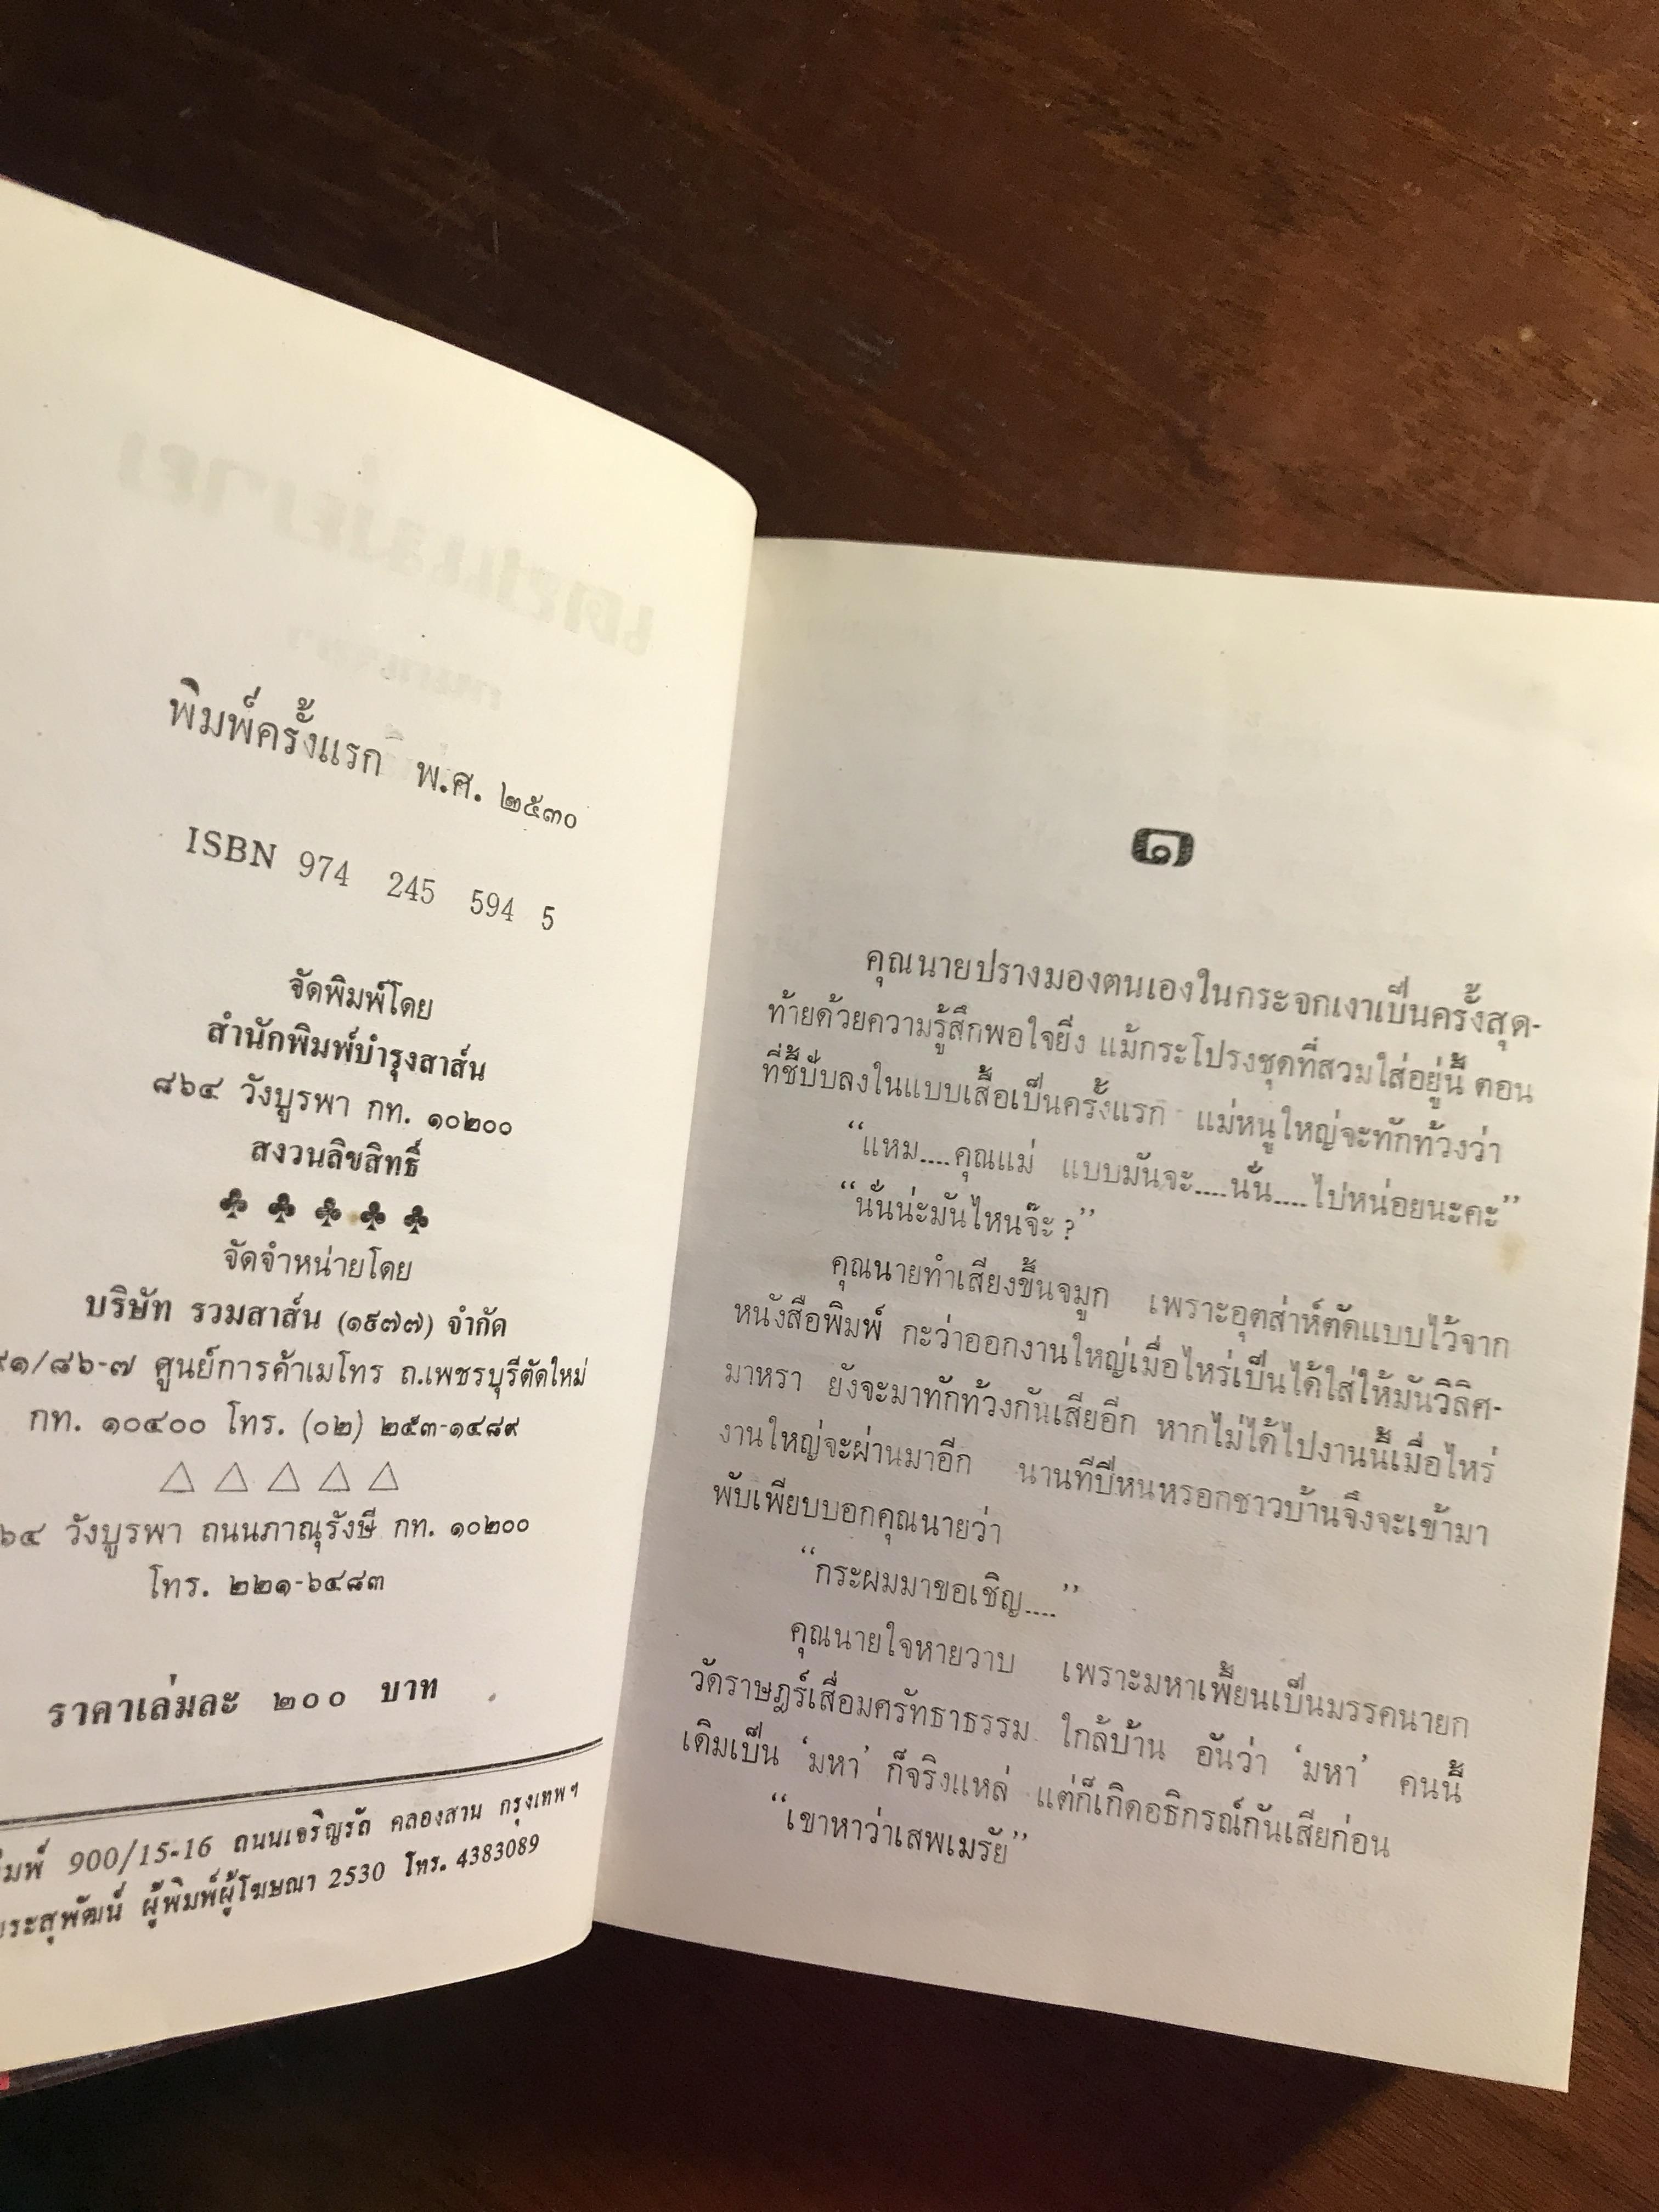 พิมพ์ครั้งแรก พ.ศ. ๒๕๓๐
ISBN 974 245 594 5
จัดพิมพ์โดย
สำนักพิมพ์บำรุงสาส์น
๘๖๔ วังบูรพา กท. ๑๐๒๐๐
สงวนลิขสิทธิ์
♣ ♣ ♣ ♣ ♣
จัดจำหน่ายโดย
บริษัท รวมสาส์น (๑๙๗๗) จำกัด
๙๑/๘๖-๗ ศูนย์การค้าเมโทร ถ.เพชรบุรีตัดใหม่
กท. ๑๐๔๐๐ โทร. (๐๒) ๒๕๓-๑๔๘๙
△ △ △ △ △
๖๔ วังบูรพา ถนนภาณุรังษี กท. ๑๐๒๐๐
โทร. ๒๒๑-๖๔๘๓
ราคาเล่มละ ๒๐๐ บาท
พิมพ์ 900/15-16 ถนนเจริญรัถ คลองสาน กรุงเทพฯ
ผู้พิมพ์ผู้โฆษณา 2530 โทร. 4383089
๑
คุณนายปรางมองตนเองในกระจกเงาเป็นครั้งสุด-
ท้ายด้วยความรู้สึกพอใจยิ่ง แม้กระโปรงชุดที่สวมใส่อยู่นี้ ตอน
ที่ชี้ปั๊บลงในแบบเสื้อเป็นครั้งแรก แม่หนูใหญ่จะทักท้วงว่า
“แหม....คุณแม่ แบบมันจะ....นั่น....ไปหน่อยนะคะ”
“นั่นน่ะมันไหนจ๊ะ ?”
คุณนายทำเสียงขึ้นจมูก เพราะอุตส่าห์ตัดแบบไว้จาก
หนังสือพิมพ์ กะว่าออกงานใหญ่เมื่อไหร่เป็นได้ใส่ให้มันวิลิศ-
มาหรา ยังจะมาทักท้วงกันเสียอีก หากไม่ได้ไปงานนี้เมื่อไหร่
งานใหญ่จะผ่านมาอีก นานทีปีหนหรอกชาวบ้านจึงจะเข้ามา
พับเพียบบอกคุณนายว่า
“กระผมมาขอเชิญ....”
คุณนายใจหายวาบ เพราะมหาเพี้ยนเป็นมรรคนายก
วัดราษฎร์เสื่อมศรัทธาธรรม ใกล้บ้าน อันว่า ‘มหา’ คนนี้
เดิมเป็น ‘มหา’ ก็จริงแหล่ แต่ก็เกิดอธิกรณ์กันเสียก่อน
“เขาหาว่าเสพเมรัย”